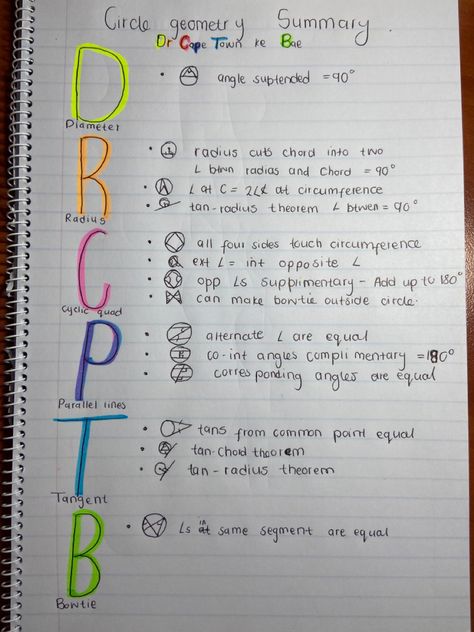 Circle geometry Summary
Dr Cape Town ke Bae
D
Diameter
• angle subtended = 90°
R
Radius
• radius cuts chord into two
∠ btwn radias and chord = 90°
• ∠ at C = 2∠¢ at circumference
• tan-radius theorem ∠ btwen = 90°
C
cyclic quad
• all four sides touch circumference
• ext ∠ = int opposite ∠
• opp ∠s supplimentary - Add up to 180°
• can make bowtie outside circle.
P
Parallel lines
• alternate ∠ are equal
• co-int angles complimentary = 180°
• corresponding angles are equal
T
Tangent
• tans from common point equal
• tan-chord theorem
• tan-radius theorem
B
Bowtie
• ∠s in at same segment are equal